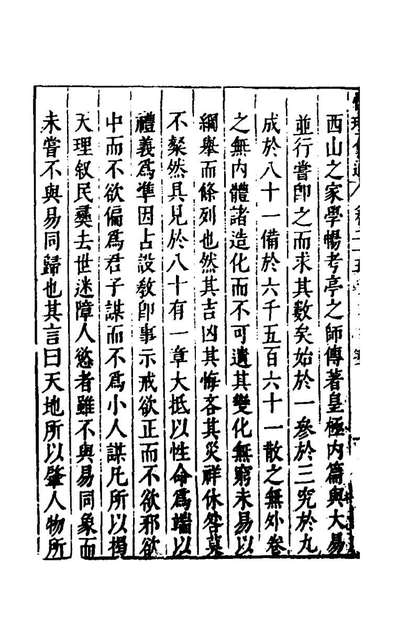 西山之家學暢考亭之師傳著皇極內篇與大易
並行嘗即之而求其數矣始於一參於三究於九
成於八十一備於六千五百六十一散之無外卷
之無內體諸造化而不可遺其變化無窮未易以
綱舉而條列也然其吉凶其悔吝其災祥休咎莫
不粲然具見於八十有一章大抵以性命為端以
禮義為準因占設敎即事示戒欲正而不欲邪欲
中而不欲偏為君子謀而不為小人謀凡所以揭
天理叙民彝去世迷障人慾者雖不與易同象而
未嘗不與易同歸也其言曰天地所以肇人物所